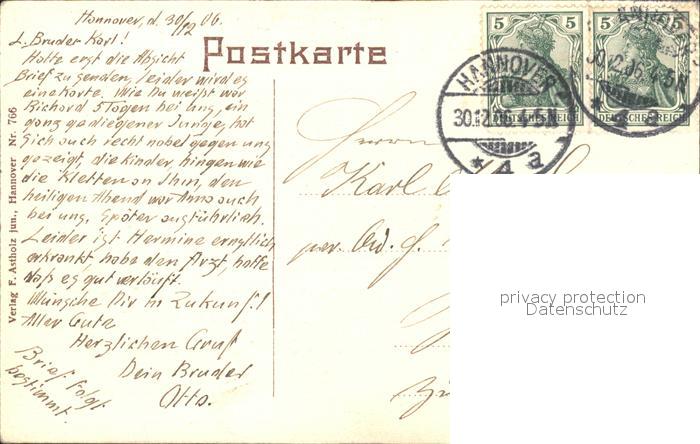 Hannover, d. 30/12 06.
L. Bruder Karl!
Hatte erst die Absicht
Brief zu senden, leider wird es
eine Karte. Wie Du weißt war
Richard 5 Tagen bei uns, ein
ganz gediegener Junge, hat
sich auch recht nobel gegen uns
gezeigt, die Kinder, hingen wie
die Kletten an Ihm, den
heiligen Abend war Anna auch
bei uns, Später ausführlich.
Leider ist Hermine ernstlich
erkrankt, habe den Arzt, hoffe
daß es gut verläuft.
Wünsche Dir in Zukunft!
Alles Gute
Herzlichen Gruß
Dein Bruder
Otto.
Brief folgt
bestimmt!
Verlag F. Astholz jun., Hannover Nr. 766
Postkarte
5 5
DEUTSCHES REICH
5 5
DEUTSCHES REICH
HANNOVER
30.12.
* 4 a
Herrn
Karl
per Ad.
privacy protection
Datenschutz